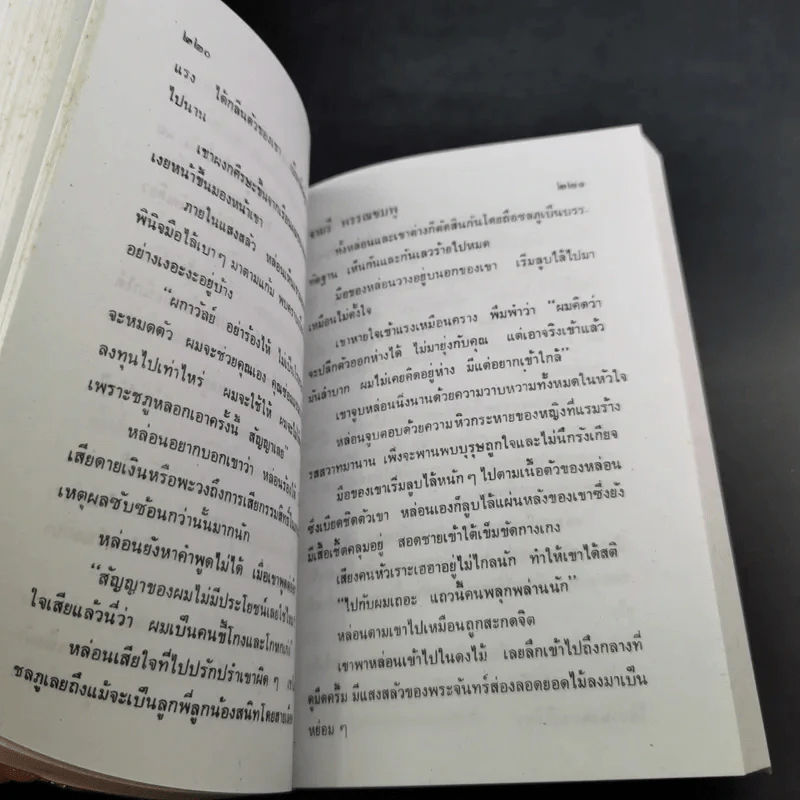 ๒๒๐
แรง ได้กลิ่นตัวของเขา
ไปนาน
เขาผงกศีรษะขึ้นจาก
เงยหน้าขึ้นมองหน้าเขา
ภายในแสงสลัว หล่อนเห็น
พินิจมือไล้เบาๆ มาตามแก้ม พบ
อย่างเงอะงะอยู่บ้าง
“ผกาวัลย์ อย่าร้องไห้ ไม่เป็น
จะหมดตัว ผมจะช่วยคุณเอง คุณ
ลงทุนไปเท่าไหร่ ผมจะใช้ให้ ผม
เพราะชภูหลอกเอาครั้งนี้ สัญญาเลย”
หล่อนอยากบอกเขาว่า หล่อนร้องไห้
เสียดายเงินหรือพะวงถึงการเสียกรรมสิทธิ์
เหตุผลซับซ้อนกว่านั้นมากนัก
หล่อนยังหาคำพูดไม่ได้ เมื่อเขาพูด
“สัญญาของผมไม่มีประโยชน์เลยใช่ไหม
ใจเสียแล้วนี่ว่า ผมเป็นคนขี้โกงและโกหก
หล่อนเสียใจที่ไปปรักปรำเขาผิดๆ
ชลภูเลยถึงแม้จะเป็นลูกพี่ลูกน้องสนิทโดยสาย
๒๒๑
จามรี พรรณชมพู
ทั้งหล่อนและเขาต่างก็ตัดสินกันโดยถือชลภูเป็นบรร-
ทัดฐาน เห็นกันและกันเลวร้ายไปหมด
มือของหล่อนวางอยู่บนอกของเขา เริ่มลูบไล้ไปมา
เหมือนไม่ตั้งใจ
เขาหายใจเข้าแรงเหมือนคราง พึมพำว่า “ผมคิดว่า
จะปลีกตัวออกห่างได้ ไม่มายุ่งกับคุณ แต่เอาจริงเข้าแล้ว
มันลำบาก ผมไม่เคยคิดอยู่ห่าง มีแต่อยากเข้าใกล้”
เขาจูบหล่อนนิ่งนานด้วยความวาบหวามทั้งหมดในหัวใจ
หล่อนจูบตอบด้วยความหิวกระหายของหญิงที่แรมร้าง
รสสวาทมานาน เพิ่งจะพานพบบุรุษถูกใจและไม่นึกรังเกียจ
มือของเขาเริ่มลูบไล้หนักๆ ไปตามเนื้อตัวของหล่อน
ซึ่งเบียดชิดตัวเขา หล่อนเองก็ลูบไล้แผ่นหลังของเขาซึ่งยัง
มีเสื้อเชิ้ตคลุมอยู่ สอดชายเข้าใต้เข็มขัดกางเกง
เสียงคนหัวเราะเฮฮาอยู่ไม่ไกลนัก ทำให้เขาได้สติ
“ไปกับผมเถอะ แถวนี้คนพลุกพล่านนัก”
หล่อนตามเขาไปเหมือนถูกสะกดจิต
เขาพาหล่อนเข้าไปในดงไม้ เลยลึกเข้าไปถึงกลางที่
ดูมืดครึ้ม มีแสงสลัวของพระจันทร์ส่องลอดยอดไม้ลงมาเป็น
หย่อมๆ